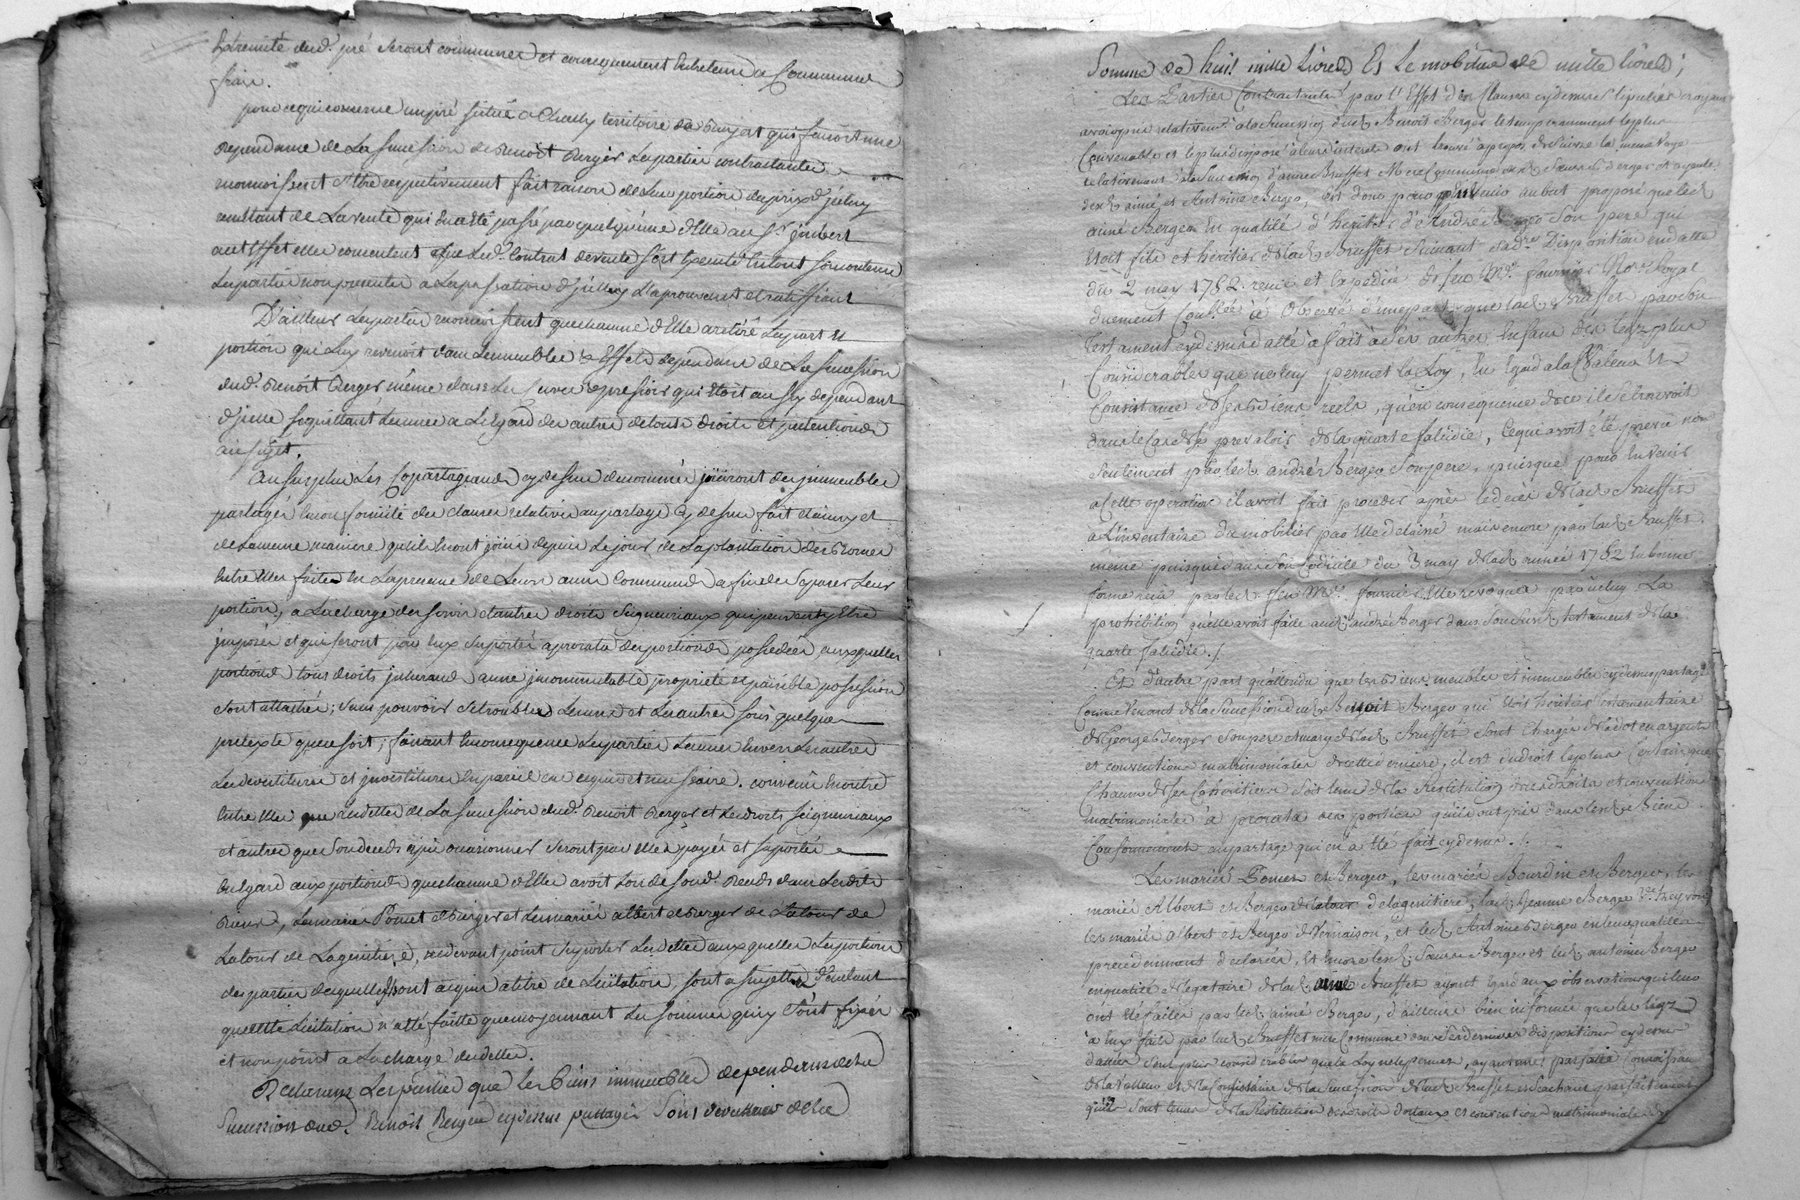 Extremité dud. pré seront communes et consequemment Entretenu a Communs
frais.
pour ce qui concerne un pré situé a territoire de qui faisoit une
Dependance de La succession de Benoit Berger Les parties contractantes
reconnoissent s'être respectivement fait raison de Leur portion du prix d'jceluy
resultant de La vente qui En a été passé par quelqu'une d'Elle au Sr jmbert
a cet Effet elles consentent que Led. Contrat de vente soit Executé En tout son contenu
Les parties non presentes a La passation d'jcelluy L'aprouvent et ratiffiant
D'ailleurs Les parties reconnoissent que chacune d'Elle a retiré La part et
portion qui Luy revenoit dans Les meubles & Effets dependants de La succession
dud. Benoit Berger même dans Le pressoir qui Etoit aussy dependant
d'jcelle s'aquittant Les unes a L'Egard des autres de tous droits et pretentions
au sujet.
Au surplus Les Copartageants cy dessus denommés jouiront des jmmeubles
partagés En conformité des clauses relatives au partage Cy dessus fait et ainsy et
de La meme maniere qu'ils En ont joui depuis Le jour de La plantation des Bornes
Entre Elles faites En La presence de Leurs amis Communs a fin de separer Leurs
portions, a La charge des servis et autres droits Seigneuriaux qui peuvent y Etre
jmposés et qui seront par Eux suportés a prorata des portions possedées auxquelles
portions tous droits jmmeuable propriété et paisible possession
sont attachés; sans pouvoir se troubler Les uns et Les autres sous quelque
pretexte que ce soit; faisant En consequence Les parties Les unes Envers Les autres
Les devestitures et jnvestitures En pareil cas requis et necessaire. convenu En outre
Entre Elles que Les dettes de La succession dud. Benoit Berger et Les droits seigneuriaux
et autres que Son deceds a pu occasionner seront par Elles payés et suportés
En Egard aux portions que chacune d'Elle avoit Lors de Son d. deceds dans Lesdits
Biens, Les mariés Ponset et Berger et Les mariés albert et Berger de La tour de
La tour de Lagenitiere, ne devant point suporter Les dettes auxquelles Les portions
des parties desquelles jls ont acquis a titre de Licitation, sont assujetties d'autant
que cette Licitation n'a été faitte que moyennant Les sommes qui y sont fixées
et non point a La charge des dettes.
Declarent Les parties que Les biens immeubles dependants de la
Succession dud. Benoit Berger cy dessus partagés Sont de valleur de la
Somme de huit mille Livres Et Le mobilier de mille livres;
Les Parties Contractantes par l'Effet des Clauses cy dessus stipulées croyant
avoir pris relativemt. a la Succession dud. Benoit Berger le temperamment le plus
Convenable et le plus disposé a leurs interets ont trouvé a propos de suivre la meme voye
relativement a la Succession d'anne Brusset Mere Commune desd. Soeurs Berger et ayeule
desd. aimé et Antoine Berger, est donc pour parvenir au but proposé que led.
aimé Berger En qualité d'heritier d'André Berger Son pere qui
Etoit fils et heritier de lad. Brusset Suivant sa dre. Disposition en datte
du 2 may 1762 reçue et Expediée de feu Me. fournier Nore. Royal
duement Conllée a Observé d'une part que lad. Brusset par son
testament cy dessus datté a fait a ses autres Enfans des legz plus
Considerables que ne luy permet la Loy, En Egard a la Valeur Et
Consistance de ses biens reels, qu'en consequence de ce il se trouvoit
dans le Cas de se prevaloir de la quarte falcidie, Ce qui avoit été prevu non
Seulement par led. andré Berger Son pere, puisque pour En venir
a Cette operation il avoit fait proceder après le decès de lad. Brusset
a L'inventaire du mobilier par Elle delaissé mais encore par lad. Brusset
même puisque dans Son Codicille du 3 may de lad. année 1762 En bonne
forme reçu par led. feu Me. fournier Elle revoque par icelluy La
prohibition qu'elle avoit faite aud. andré Berger dans Son Susd. testament de la
quarte falcidie./.
Et d'autre part qu'attendu que les biens meubles et immeubles cy dessus partagés
Comme Venants de la Succession dud. Benoit Berger qui Etoit heritier testamentaire
de George Berger Son pere et mary de lad. Brusset Sont Chargés de la dot en argent
et conventions matrimoniales de cette derniere, il est de droit le plus Certain que
Chacun des Cohéritiers Soit tenu de la Restitution desd. droits et conventions
matrimoniales a prorata des portions qu'ils ont pris dans lesd. Biens
Conformement au partage qui en a été fait cy dessus./.
Les mariés Ponset et Berger, les mariés Bourdin et Berger, les
mariés Albert et Berger de la tour de lagenitiere, lad. Jeanne Berger Ve.
les mariés albert et Berger de Vernaison, et led. Antoine Berger en les qualités
precedemment declarées, Et encore lesd. Soeurs Berger et led. antoine Berger
en qualité de legataires de lad. anne Brusset ayant égard aux observations qui leur
ont été faites par led. aimé Berger, d'ailleurs bien informés que les legz
à Eux faits par lad. Brusset mere Commune dans Ses dernieres dispositions cy dessus
dattées Sont plus considerables que la Loy ne le permet, ayant une parfaite Connoissance
de la Valeur et de la Consistance de la Succession de lad. Brusset et Sachant parfaitement
qu'ils Sont tenus de la Restitution des droits dotaux et convention matrimoniales de